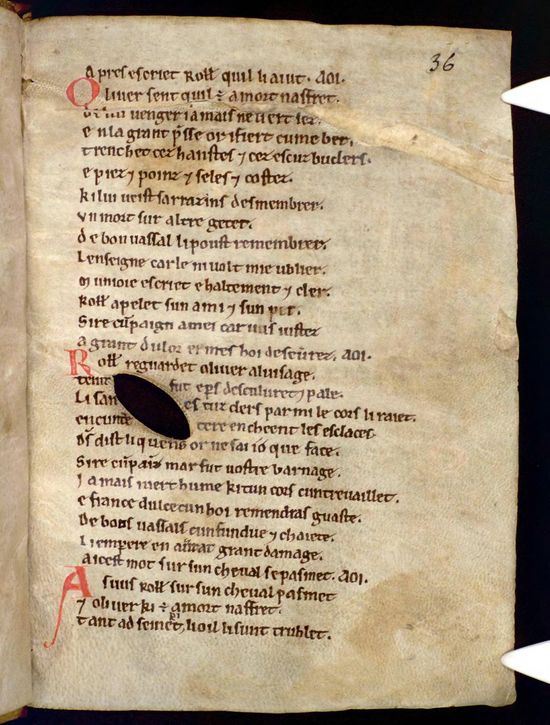 36
Apres escriet Roll̃ quil li aiut. AOI.
Oliver sent quil ē a mort naffret.
De lui venger iamais ne li ert ler.
en la grant p̃sse or i fiert cume ber.
trenchet cez hanstes ⁊ cez escuz buclers.
e piez ⁊ poinz ⁊ seles ⁊ costez.
ki lui veist sarrazins desmembrer.
Vn mort sur altre geter.
de bon vassal li poust remembrer.
Lenseigne carle ni volt mie ublier.
munioie escriet e haltement ⁊ cler.
Roll̃ apelet sun ami ⁊ sun per.
Sire cũpaign a mei car vus iustez
a grant dulor ermes hoi deseurez. AOI.
Roll̃ reguardet oliver al uisage.
teint fut e ꝑs desculuret ⁊ pale.
Li san es tuz clers par mi le cors li raiet.
encuntre tere en cheent les esclaces.
Dš dist li quens or ne sai io que face.
Sire cũpainz mar fut uostre barnage.
Iamais niert hume ki tun cors cuntreuaillet.
e france dulce cun hoi remendras guaste.
De bons vassals cunfundue ⁊ chaiete.
Li empere en avrat grant damage.
Aicest mot sur sun cheval se pasmet. AOI.
As vus Roll̃ sur sun cheval pasmet
⁊ oliver ki ē a mort naffret.
tant ad seinet li oil li sunt trublet.